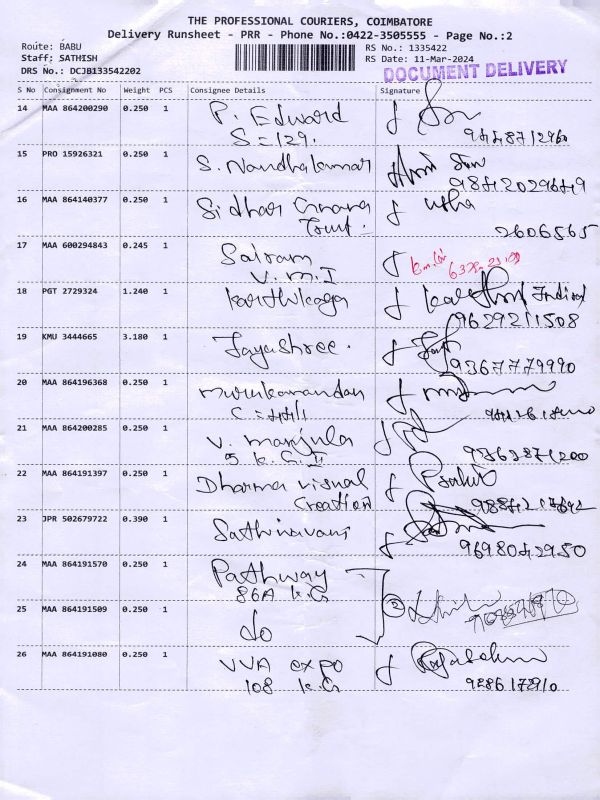 THE PROFESSIONAL COURIERS, COIMBATORE
Delivery Runsheet - PRR - Phone No.:0422-3505555 - Page No.:2
Route: BABU
Staff: SATHISH
DRS No.: DCJB133542202
RS No.: 1335422
RS Date: 11-Mar-2024
DOCUMENT DELIVERY
S No Consignment No Weight PCS Consignee Details Signature
14 MAA 864200290 0.250 1 P. Edward
S = 129.
15 PRO 15926321 0.250 1 S. Nandhakumar
9842029649
16 MAA 864140377 0.250 1 Sidhar Gnana Usha
Trust. 2606565
17 MAA 600294843 0.245 1 Sairam
V.M.I
18 PGT 2729324 1.240 1 Karthikeya
9629211508
19 KMU 3444665 3.180 1 Jayashree.
9367779990
20 MAA 864196368 0.250 1 Murukanandan
21 MAA 864200285 0.250 1 V. Manjula
5 K.G. II
22 MAA 864191397 0.250 1 Dharma Visual
Creation
23 JPR 502679722 0.390 1
9698042950
24 MAA 864191570 0.250 1 Pathway
86A K.G
25 MAA 864191509 0.250 1 do
26 MAA 864191080 0.250 1 VVA expo
108 K.G